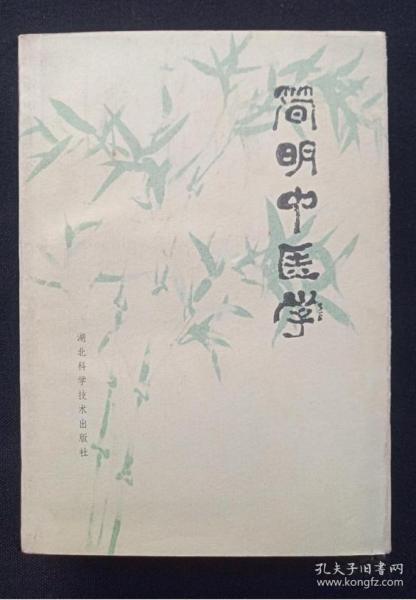 简明中医学
湖北科学技术出版社
孔夫子旧书网
www.kongfz.com